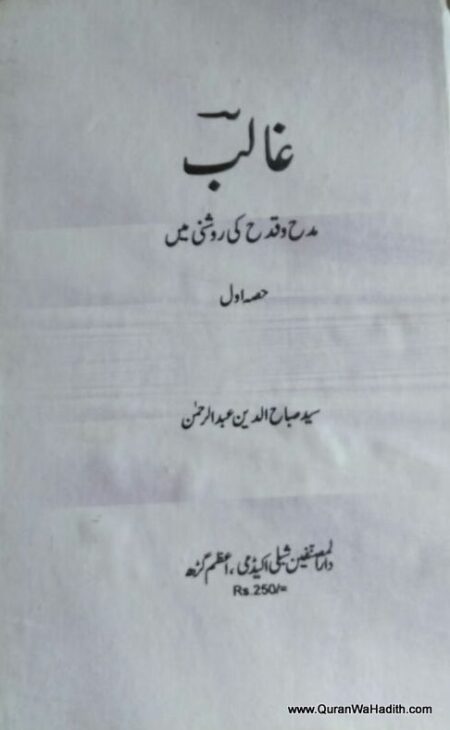 غالبؔ
مدح و قدح کی روشنی میں
حصہ اول
سید صباح الدین عبدالرحمٰن
دارالمصنفین شبلی اکیڈمی، اعظم گڑھ
Rs.250/=
www.QuranWaHadith.com